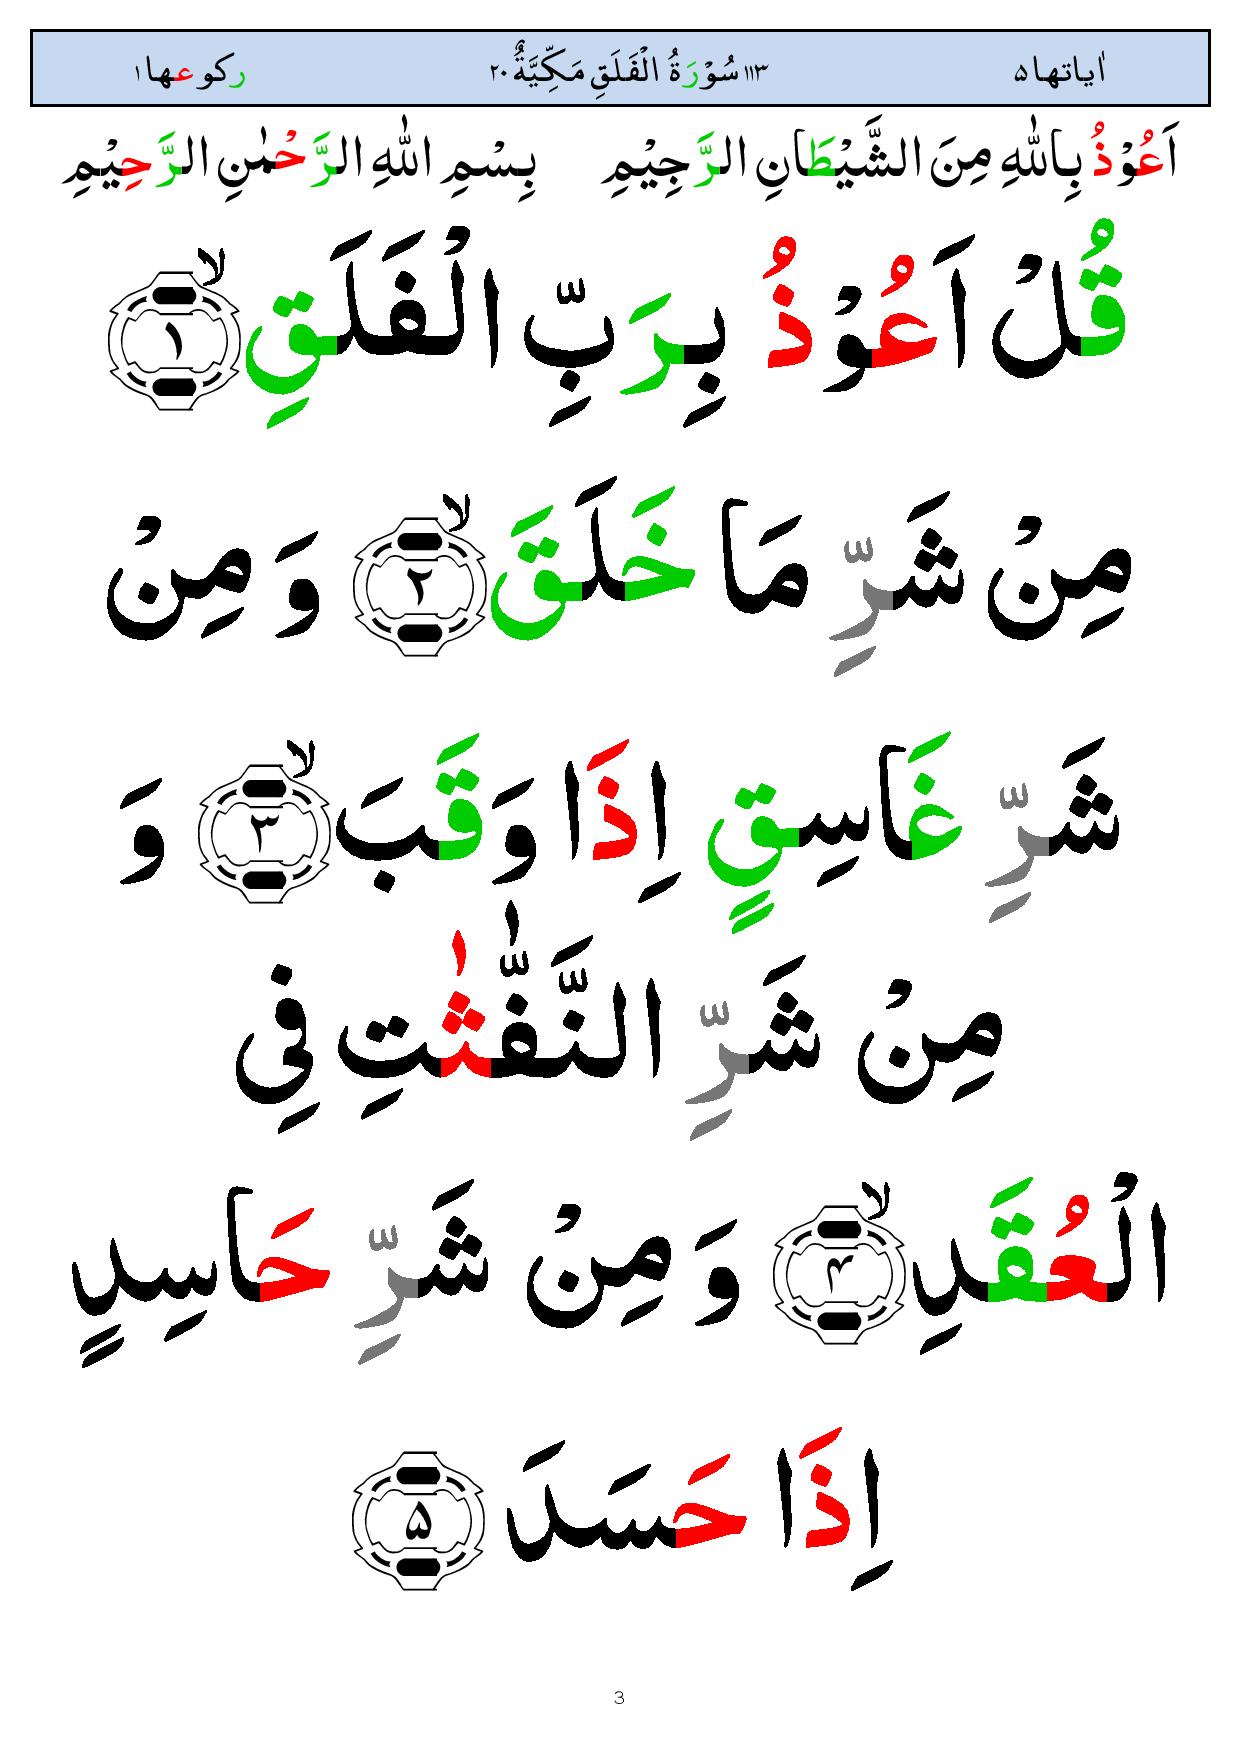 اٰیاتها ۵ ۱۱۳ سُوْرَةُ الْفَلَقِ مَكِّيَّةٌ ۲۰ ركوعها ۱
اَعُوْذُ بِاللّٰهِ مِنَ الشَّيْطَانِ الرَّجِيْمِ بِسْمِ اللّٰهِ الرَّحْمٰنِ الرَّحِيْمِ
قُلْ اَعُوْذُ بِرَبِّ الْفَلَقِ ۙ ۱
مِنْ شَرِّ مَا خَلَقَ ۙ ۲ وَ مِنْ
شَرِّ غَاسِقٍ اِذَا وَقَبَ ۙ ۳ وَ
مِنْ شَرِّ النَّفّٰثٰتِ فِی
الْعُقَدِ ۙ ۴ وَ مِنْ شَرِّ حَاسِدٍ
اِذَا حَسَدَ ۵
3